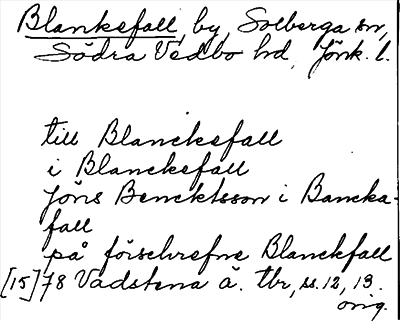 Blanksfall, by, Solberga sn,
Södra Vedbo hd, Jönk. l.
till Blancksfall
i Blancksfall
Jöns Bencktsson i Bancka-
fall
på förschrefne Blanckfall
[15]78 Vadstena ä. tbr, ss. 12, 13.
orig.